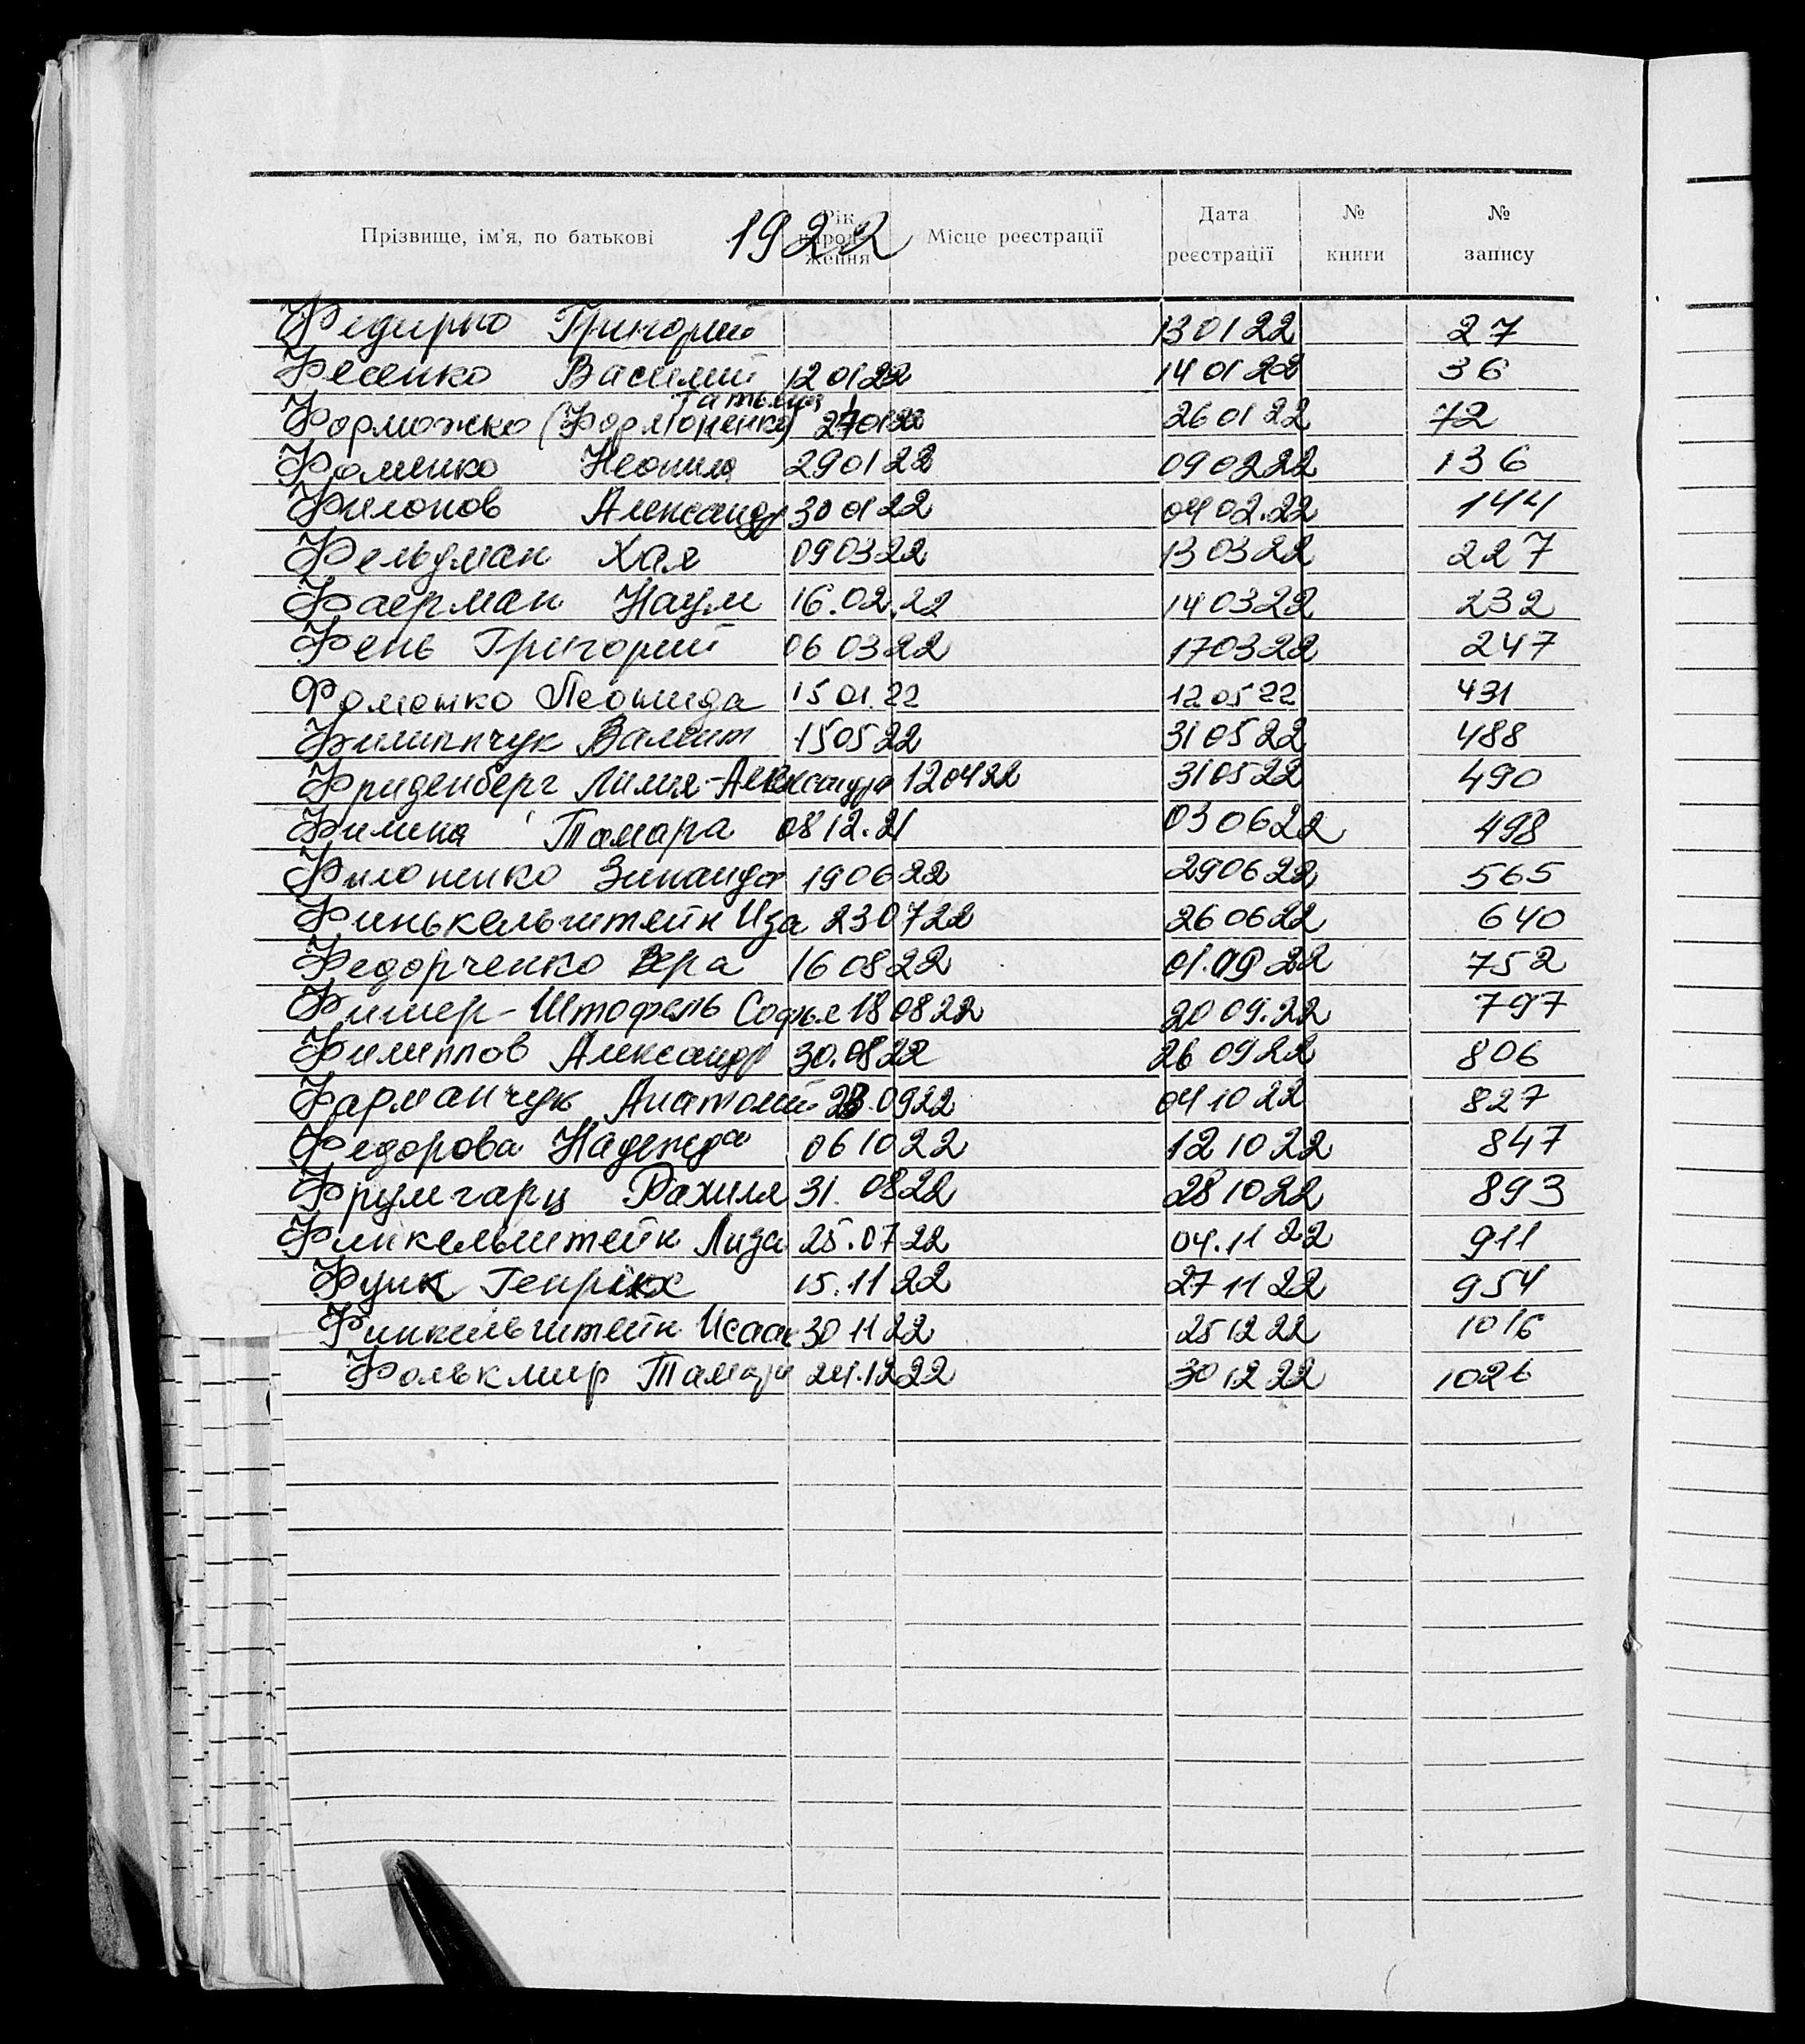 Прізвище, ім'я, по батькові Рік народження Місце реєстрації Дата реєстрації № книги № запису
1922
Федирко Григорий 130122 27
Фесенко Василий 120122 140122 36
Татьяна
Форможко (Формоненко) 270122 260122 72
Фоменко Неонила 290122 090222 136
Филонов Александр 300122 0402.22 144
Фельдман Хая 090322 130322 227
Фаерман Наум 16.02.22 140322 232
Фень Григорий 060322 170322 247
Фоменко Леонида 1501.22 120522 431
Филипчук Валент 150522 310522 488
Фриденберг Лилия-Александра 120422 310522 490
Филина Тамара 0812.21 030622 498
Филоненко Зинаида 190622 290622 565
Финькельштейн Иза 230722 260622 640
Федорченко Вера 160822 01.0922 752
Фишер-Штофель Софья 180822 2009.22 797
Филиппов Александр 30.0822 260922 806
Фарманчук Анатолий 23.0922 041022 827
Федорова Надежда 061022 121022 847
Фрумгарц Рахиля 31.0822 281022 893
Финкельштейн Лиза 25.0722 04.1122 911
Функ Генрих 15.1122 271122 954
Финкельштейн Исаак 301122 251222 1016
Фолькмир Тамара 24.1222 301222 1026